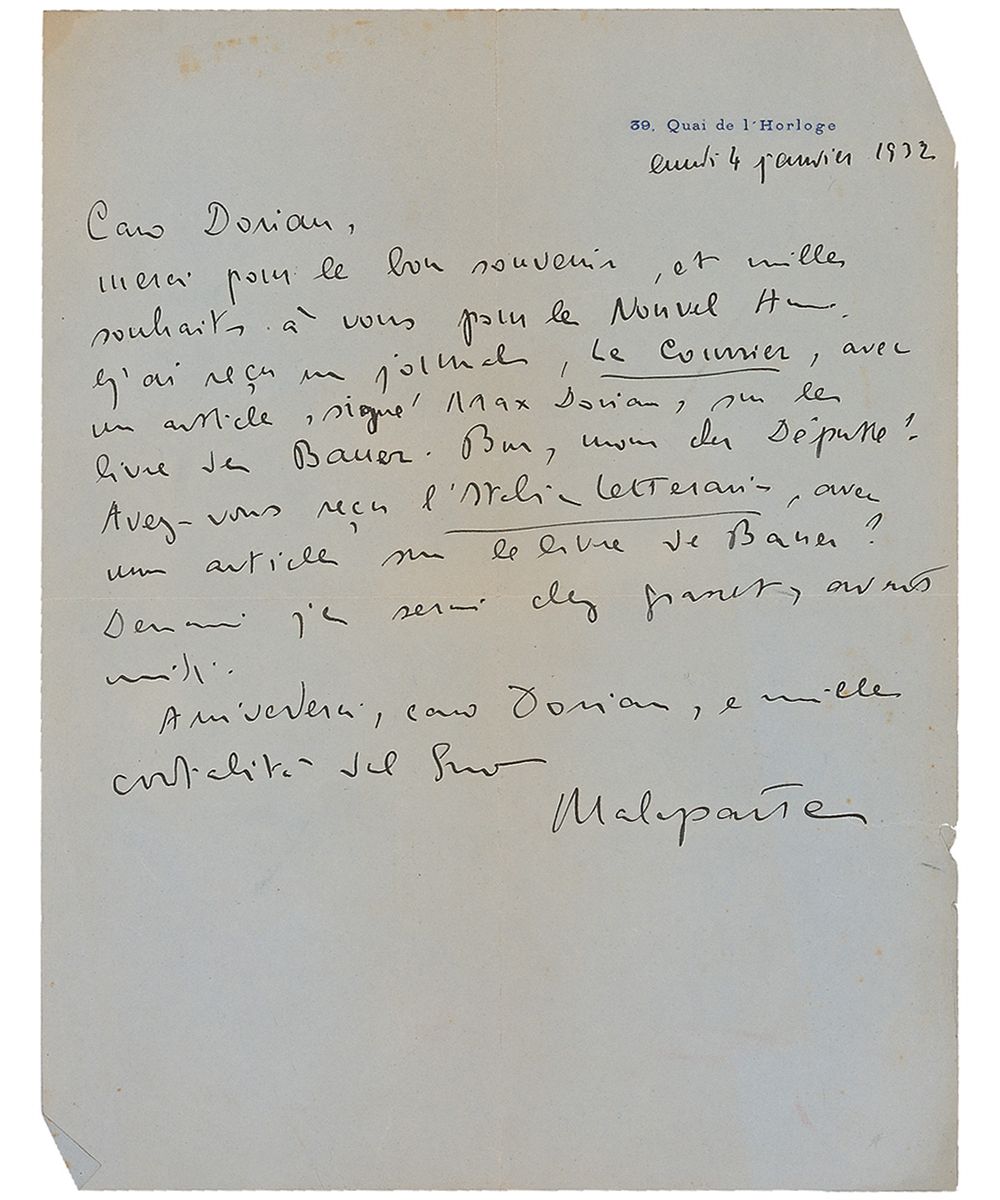 39, Quai de l'Horloge
lundi 4 janvier 1932
Caro Dorian,
merci pour le bon souvenir, et mille
souhaits à vous pour le Nouvel An.
J'ai reçu un journal, Le Courrier, avec
un article, signé Max Dorian, sur le
livre de Bauer. mon cher Député!
Avez-vous reçu l'Italia Letteraria, avec
un article sur le livre de Bauer?
Demain je serai chez Grasset, avant
midi.
Arrivederci, caro Dorian, e mille
cordialità dal Suo
Malaparte